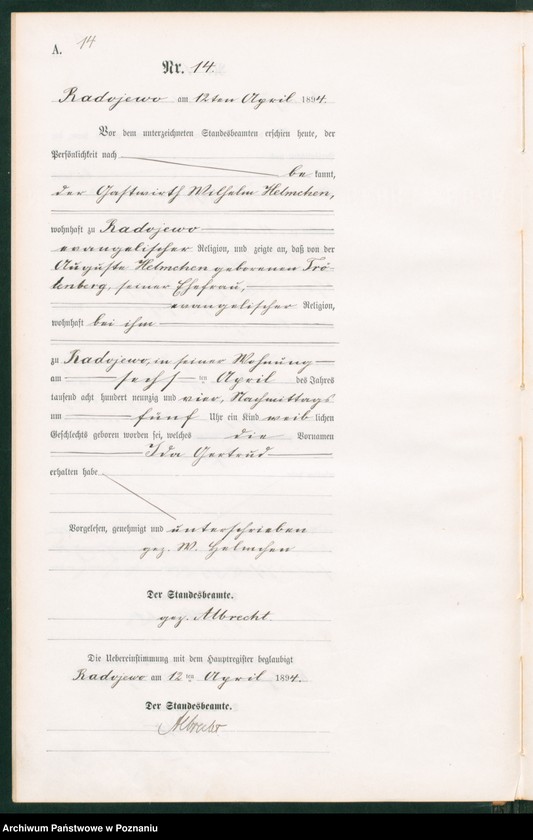 A. 14
Nr. 14.
Radojewo am 12ten April 1894.
Vor dem unterzeichneten Standesbeamten erschien heute, der
Persönlichkeit nach
be kannt,
der Gastwirth Wilhelm Helmchen,
wohnhaft zu Radojewo
evangelischer Religion, und zeigte an, daß von der
Auguste Helmchen geborenen Trö-
tenberg, seiner Ehefrau,
evangelischer Religion,
wohnhaft bei ihm
zu Radojewo, in seiner Wohnung
am sechsten April des Jahres
tausend acht hundert neunzig und vier, Nachmittags
um fünf Uhr ein Kind weib lichen
Geschlechts geboren worden sei, welches die Vornamen
Ida Gertrud
erhalten habe
Vorgelesen, genehmigt und unterschrieben
gez. W. Helmchen
Der Standesbeamte.
gez. Albrecht.
Die Uebereinstimmung mit dem Hauptregister beglaubigt
Radojewo am 12ten April 1894.
Der Standesbeamte.
Albrecht
Archiwum Państwowe w Poznaniu